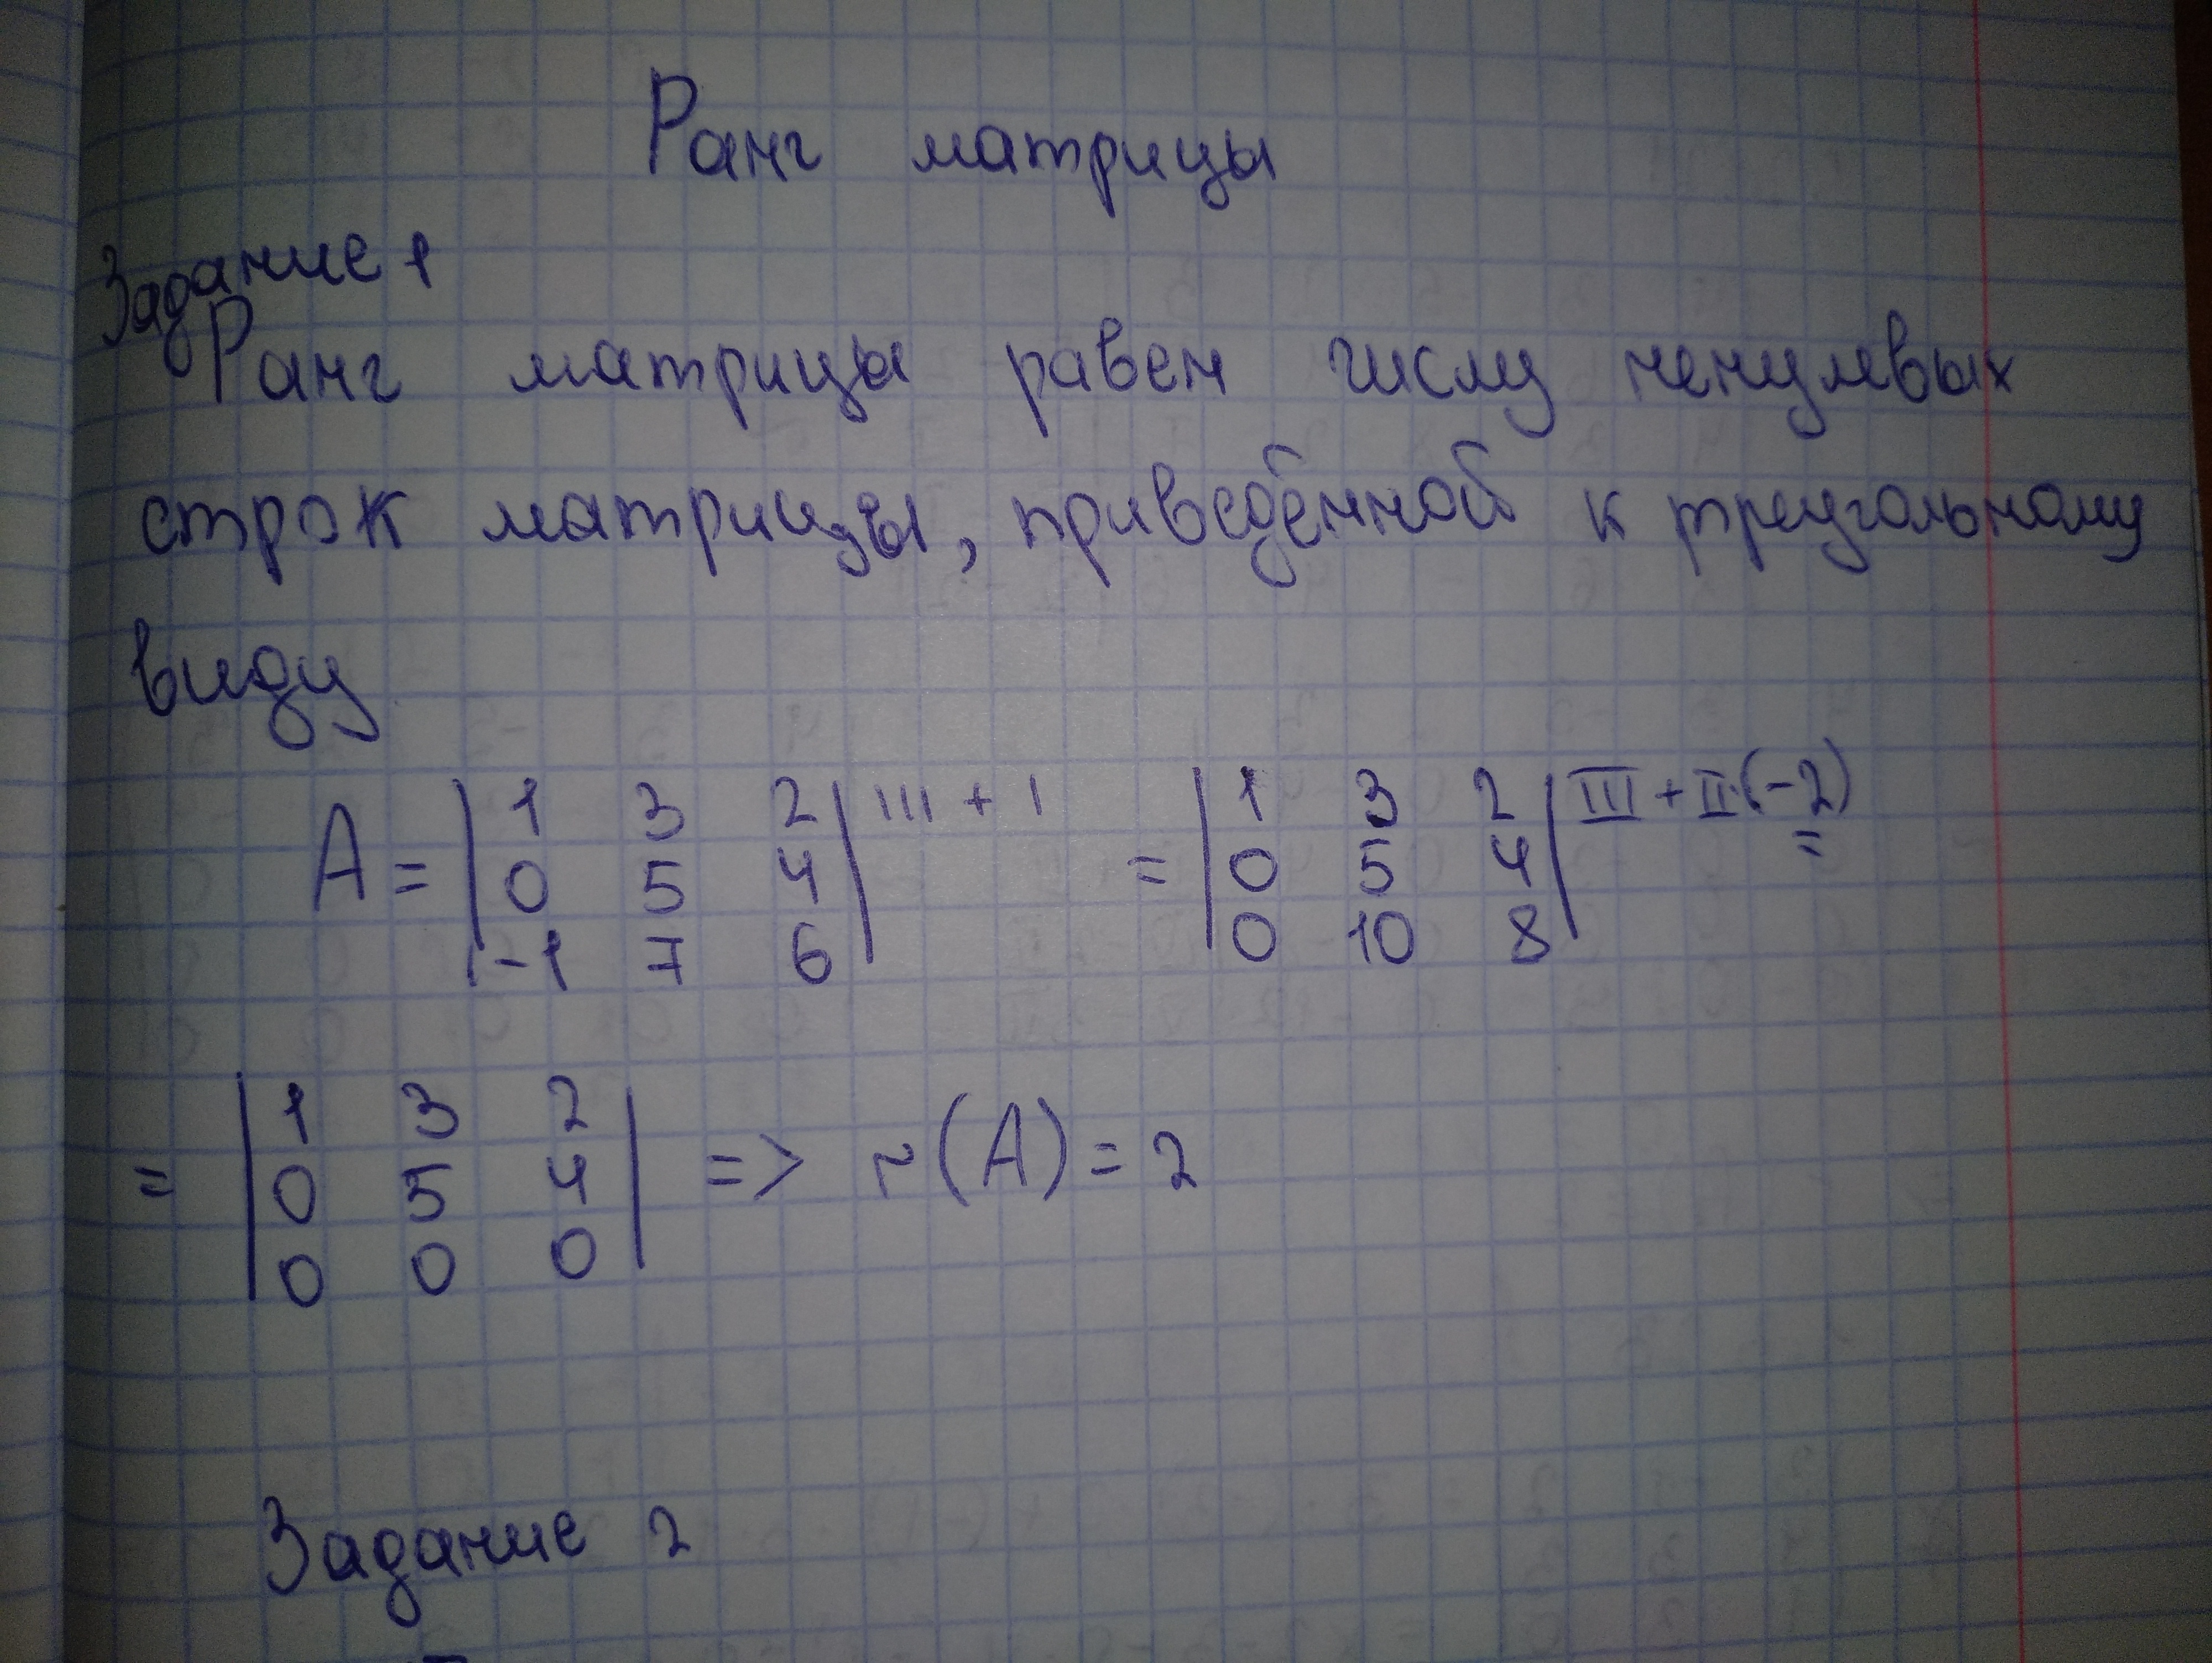 Ранг матрицы
Задание 1
Ранг матрицы равен числу ненулевых
строк матрицы, приведённой к треугольному
виду
A = | 1 3 2 | III + I = | 1 3 2 | III + II·(-2) =
| 0 5 4 | | 0 5 4 |
| -1 7 6 | | 0 10 8 |
= | 1 3 2 | => r(A) = 2
| 0 5 4 |
| 0 0 0 |
Задание 2